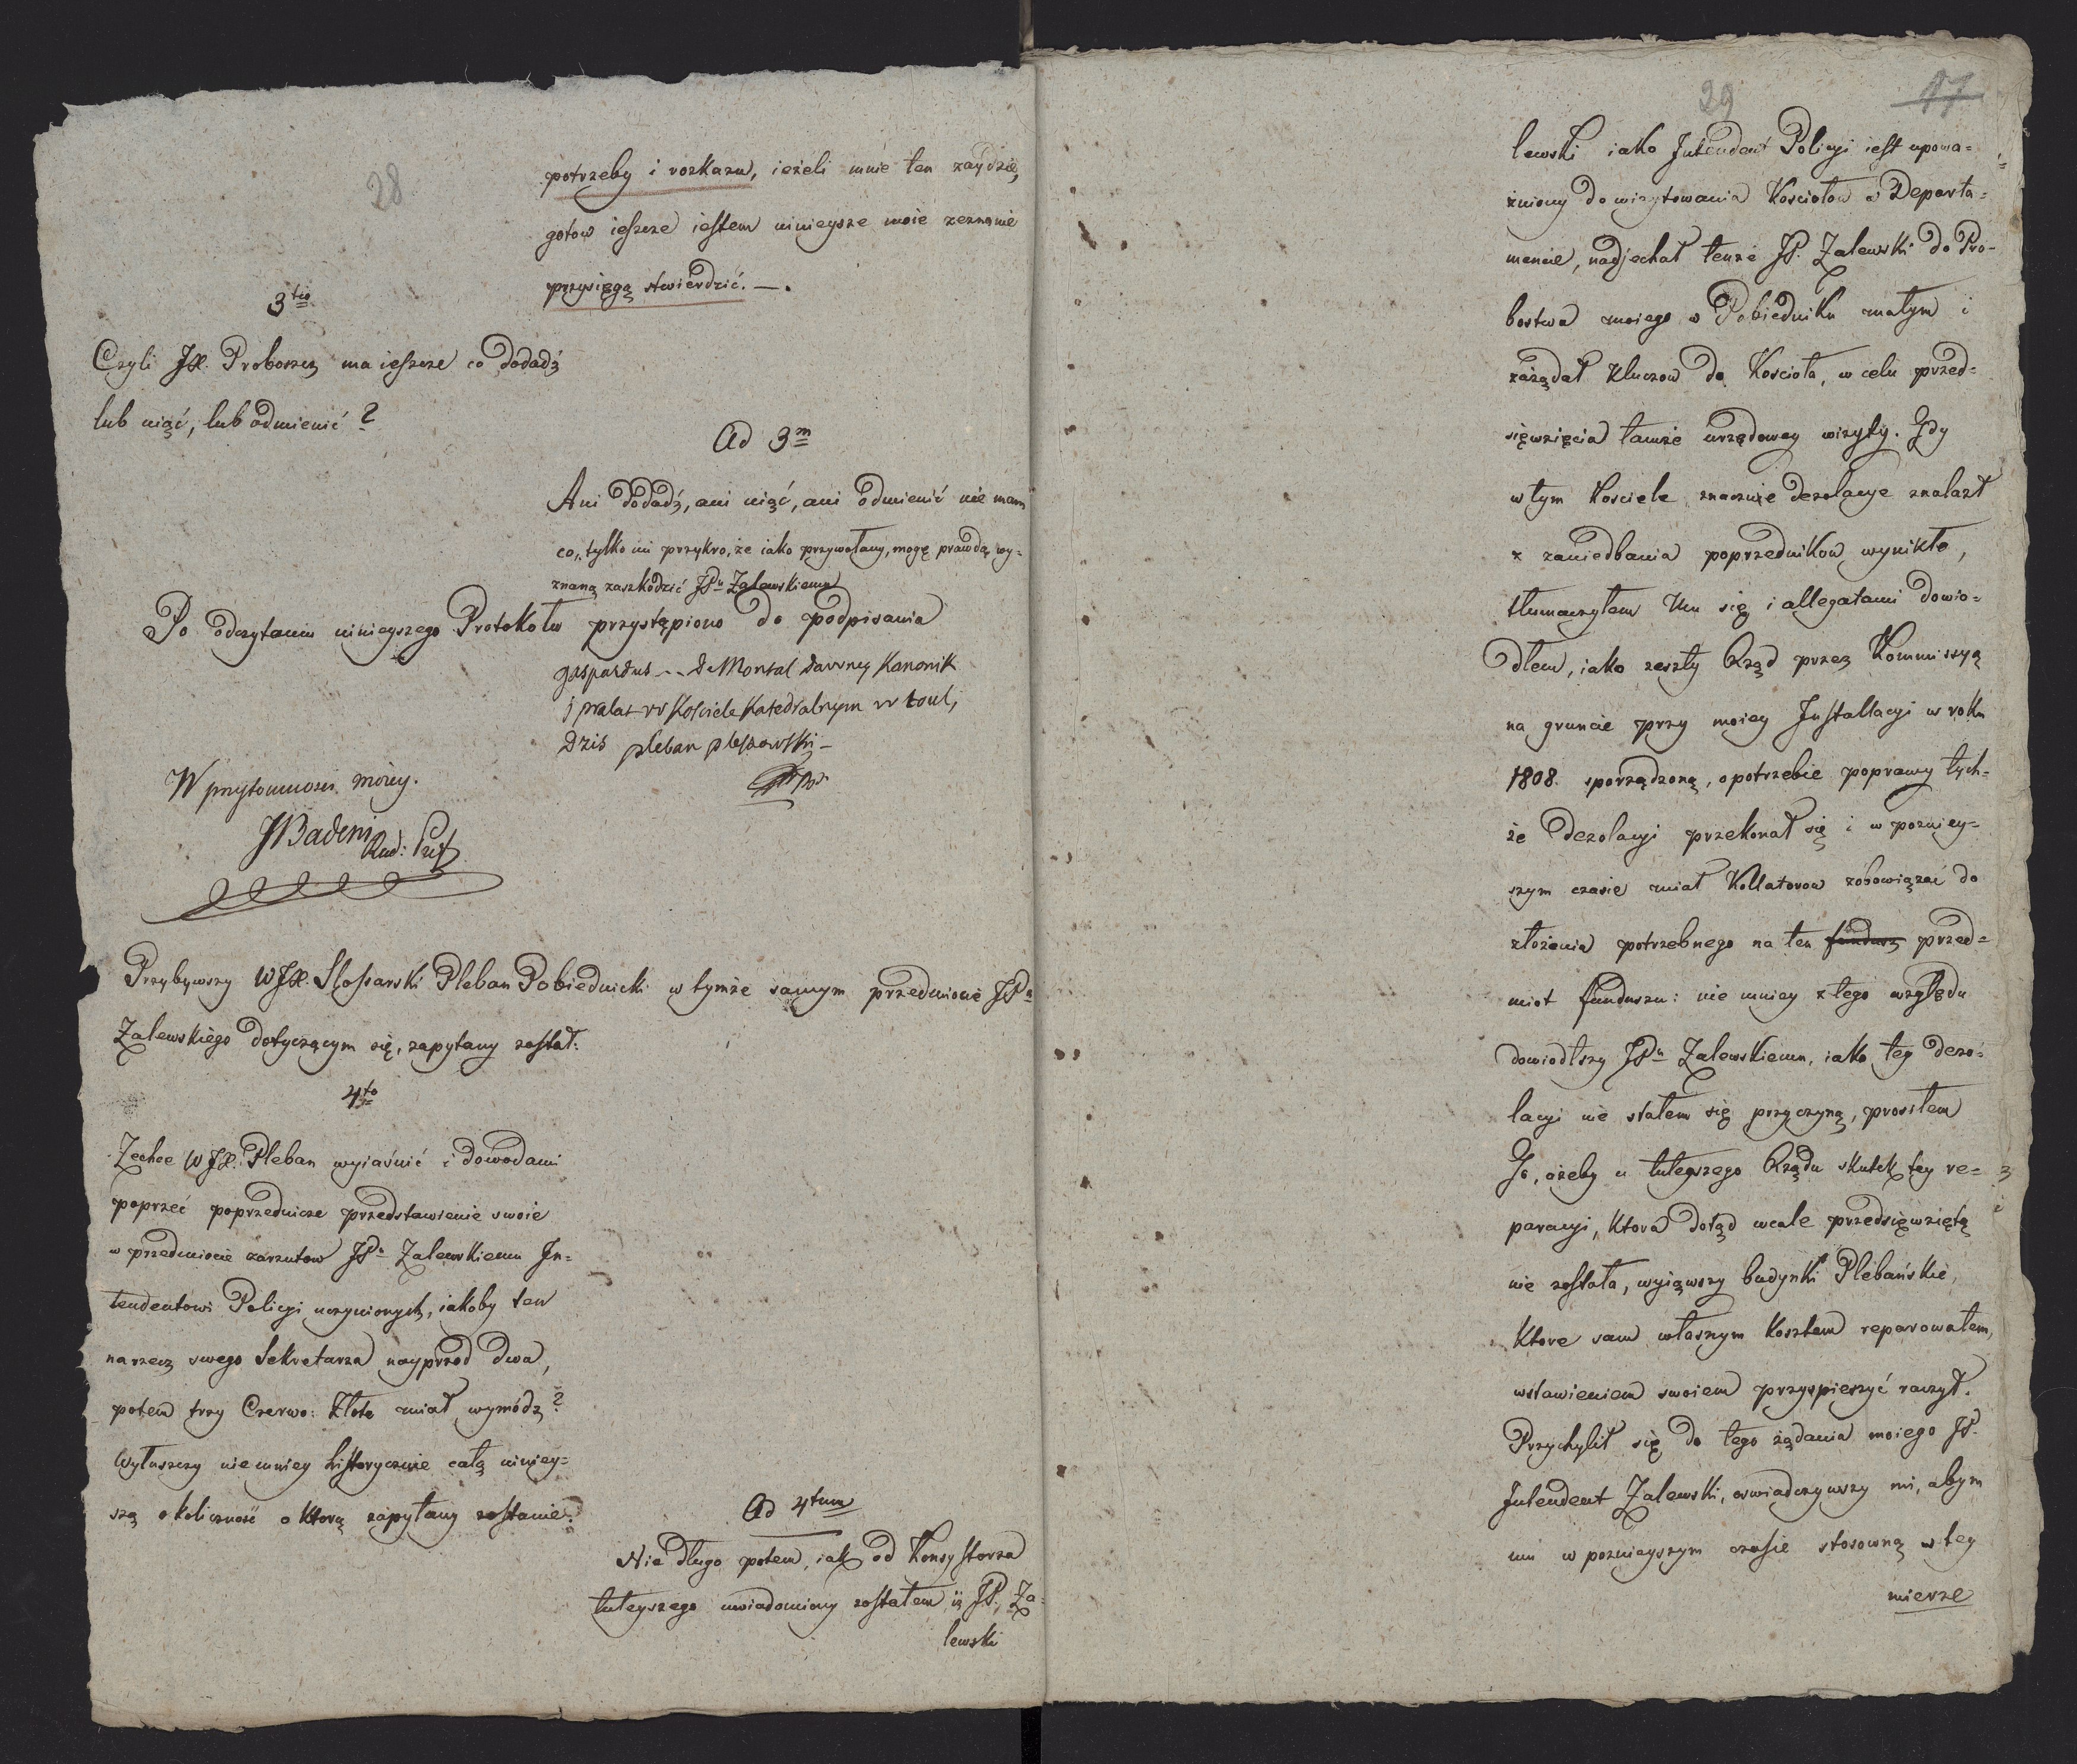 28
potrzeby i rozkazu, ieżeli mnie ten zaydzie,
gotow ieszcze iestem ninieysze moie zeznanie
przysięgą stwierdzić. —.
3tio
Czyli JX. Proboszcz ma ieszcze co dodadź
lub uiąć, lub odmienić?
Ad 3m
Ani dodadź, ani uiąć, ani odmienić nie mam
co, tylko mi przykro, że iako przywołany, mogę prawdą wy=
znaną zaszkodzić JPu Zalewskiemu
Po odczytaniu ninieyszego Protokołu przystąpiono do podpisania
gaspardus -- de Montal dawny Kanonik
j pralat w Kosciele Katedralnym w toul,
dzis pleban pleszowski –
W przytomnosci moiey.
JBadeni
Rad: Pref
Przybywszy WJX. Slosarski Pleban Pobiednicki w tymże samym przedmiocie JPa
Zalewskiego dotyczącym się, zapytany został:
4to
Zechce WJX. Pleban wyiaśnić i dowodami
poprzeć poprzednicze przedstawienie swoie
w przedmiocie zarzutow JPu Zalewskiemu In=
tendentowi Policyi uczynionych, iakoby ten
na rzecz swego Sekretarza nayprzod dwa,
potem trzy Czerwo: Złote miał wymódz?
Wyłuszczy niemniey historycznie całą niniey=
szą okoliczność o którą zapytany zostanie.
Ad 4tum
Nie długo potem, iak od Konsystorza
tuteyszego uwiadomiony zostałem, iż JP. Za=
lewski
29
17
lewski iako Intendent Policyi iest upowa=
żniony do wizytowania Kosciołow w Departa=
mencie, nadjechał tenże JP. Zalewski do Pro=
bostwa moiego w Pobiedniku małym i
zażądał kluczow do Kościoła, w celu przed=
sięwzięcia tamże urzędowey wizyty. Gdy
w tym Kosciele znacznie dezolacye znalazł
z zaniedbania poprzednikow wynikłe,
tłumaczyłem Mu się i allegatami dowio=
dłem, iako zeszły Rząd przez Kommissyą
na gruncie przy moiey Installacyi w roku
1808. sporządzoną, o potrzebie poprawy tych=
że dezolacyi przekonał się i w pozniey=
szym czasie miał Kollatorow zobowiązać do
złożenia potrzebnego na ten fundusz przed=
miot funduszu: nie mniey z tego względu
dowiodłszy JPu Zalewskiemu, iako tey dezo=
lacyi nie stałem się przyczyną, prosiłem
Go, ażeby u tuteyszego Rządu skutek tey re=
paracyi, która dotąd wcale przedsięwziętą
nie została, wyiąwszy budynki Plebańskie,
które sam własnym kosztem reparowałem,
wstawieniem swoiem przyspieszyć raczył.
Przychylił się do tego żądania moiego JP.
Intendent Zalewski, oswiadczywszy mi, abym
mu w poznieyszym czasie stosowną w tey
mierze